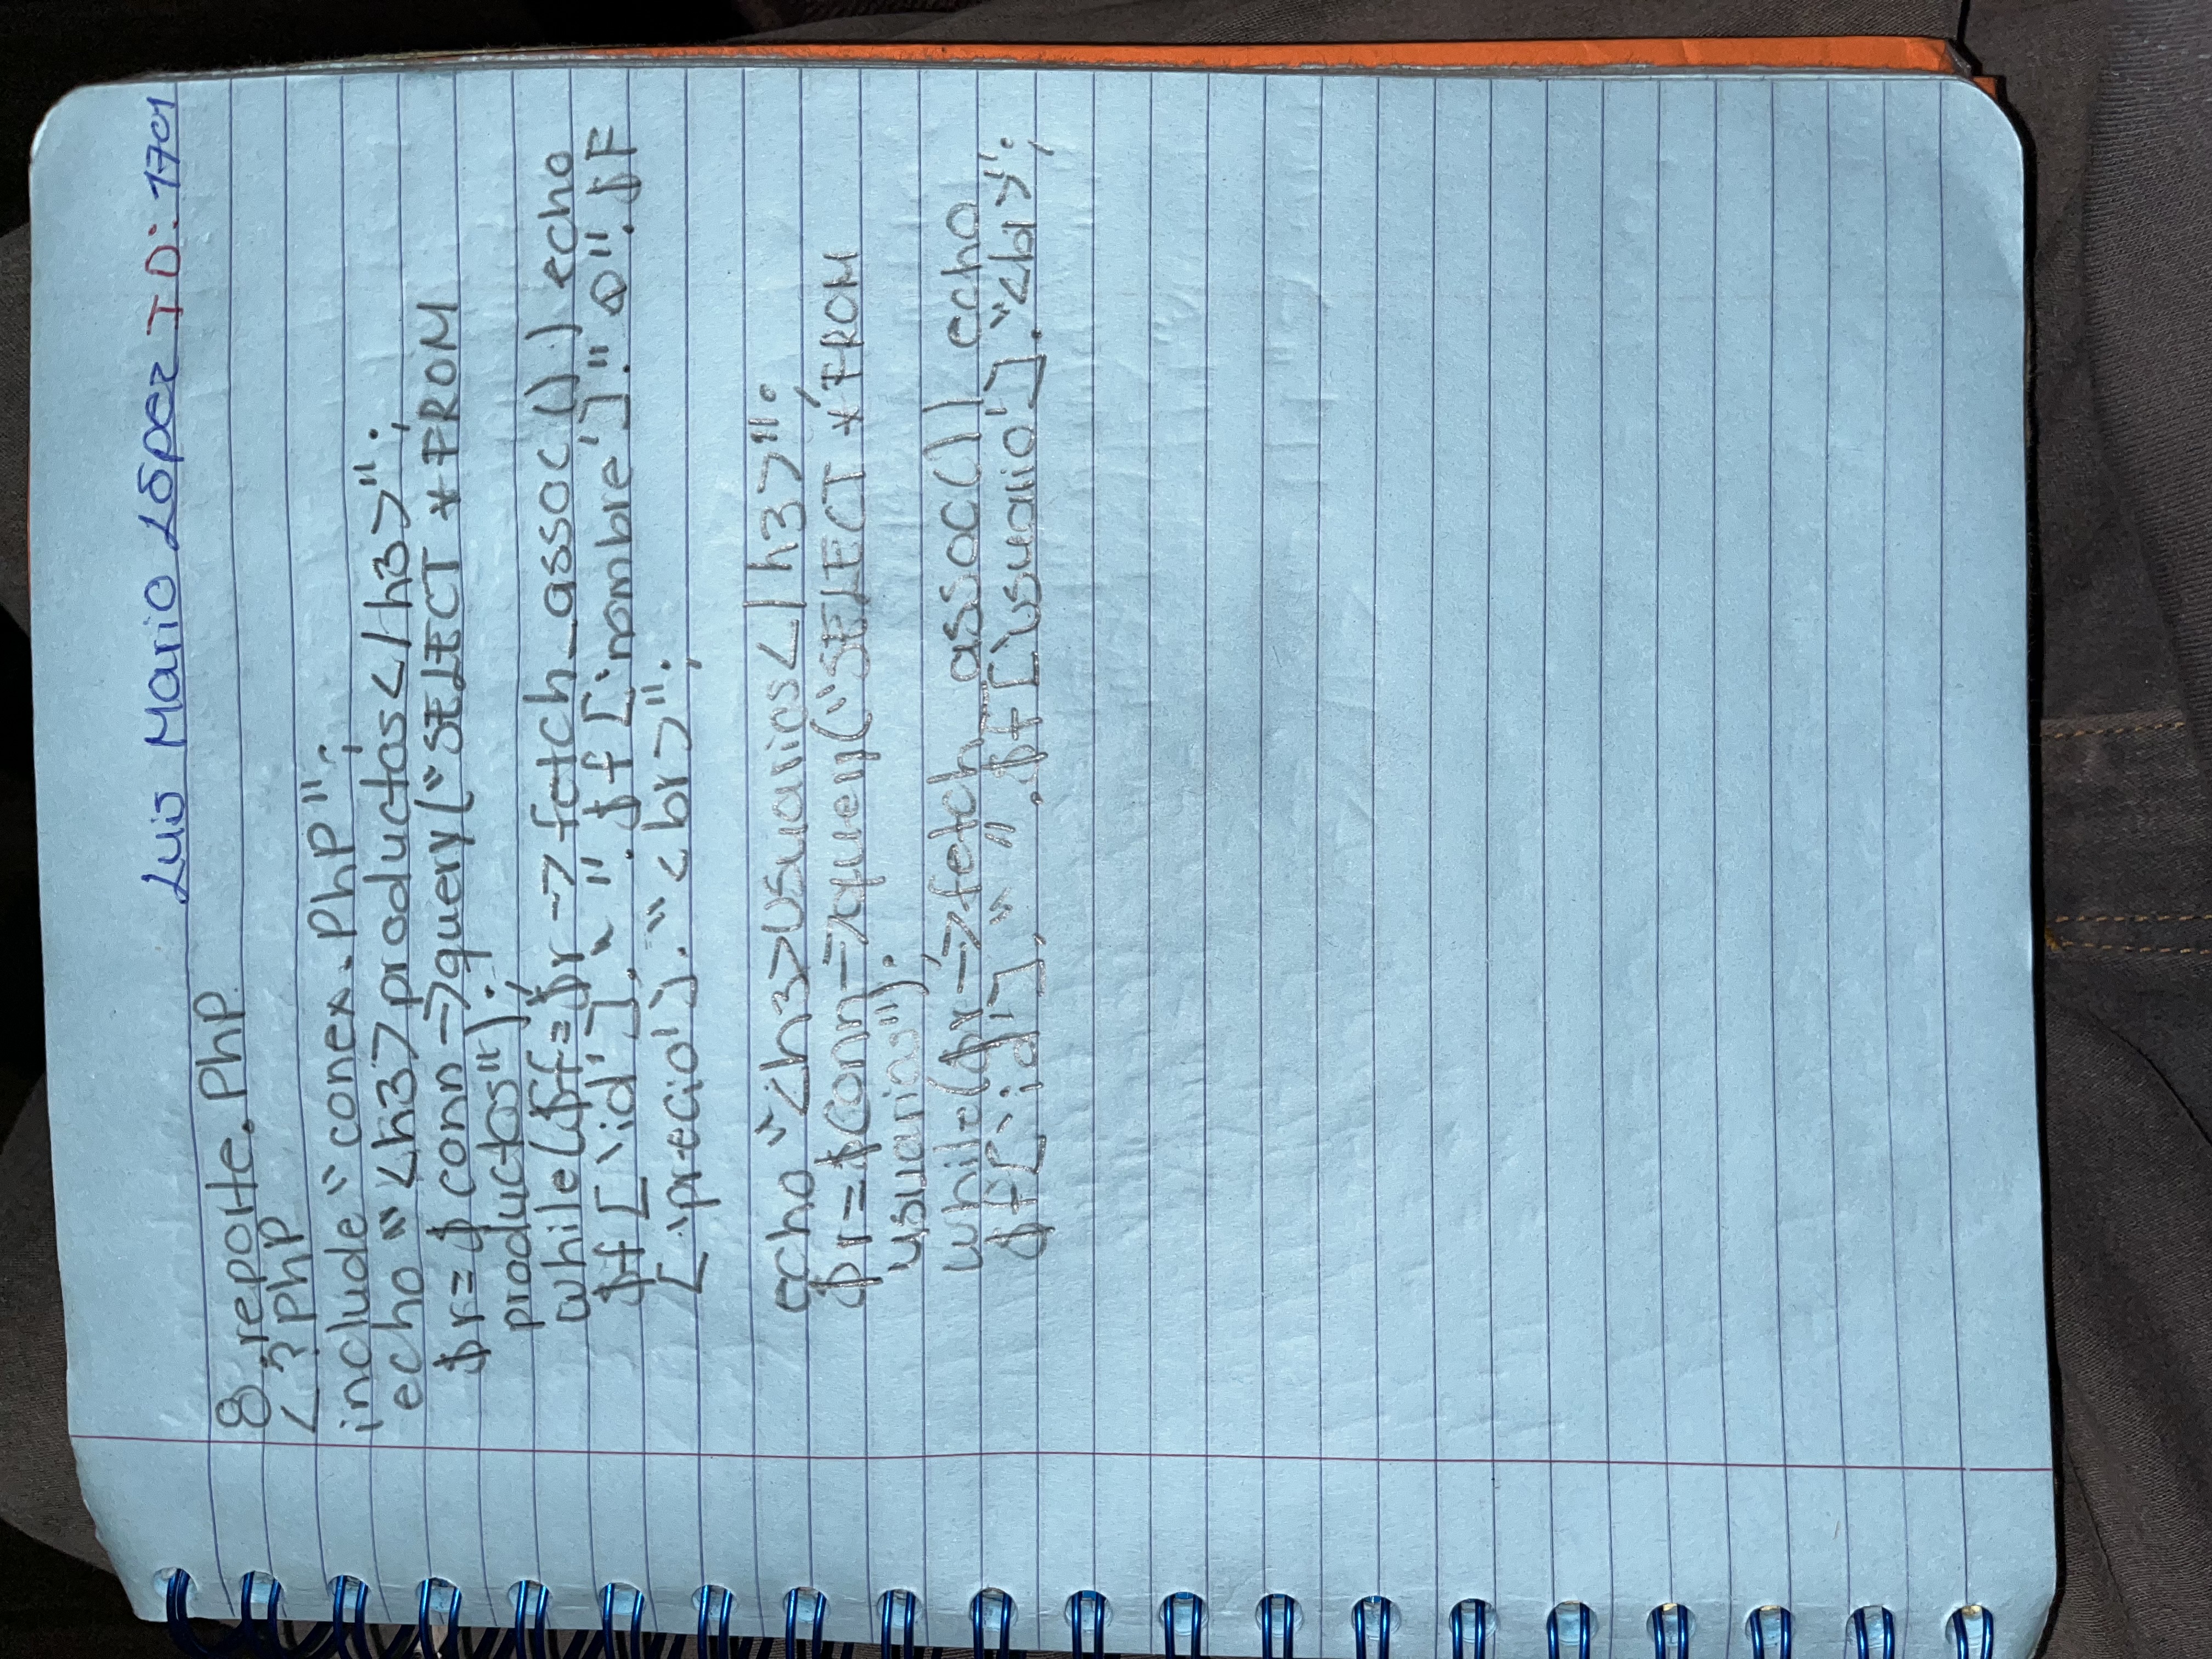 Luis Mario López ID: 1701
8 reporte.PhP
<?PhP
include "conex.PhP";
echo "<h3>productos</h3>";
$r=$conn->query("SELECT *FROM
productos");
while($f=$r->fetch_assoc()) echo
$f['id']." ".$f['nombre']." ".$F
['precio']."<br>";
echo "<h3>usuarios</h3>";
$r=$conn->query("SELECT *FROM
usuarios");
while($r->fetch_assoc()) echo
$f['id']." ".$f['usuario']."<br>";